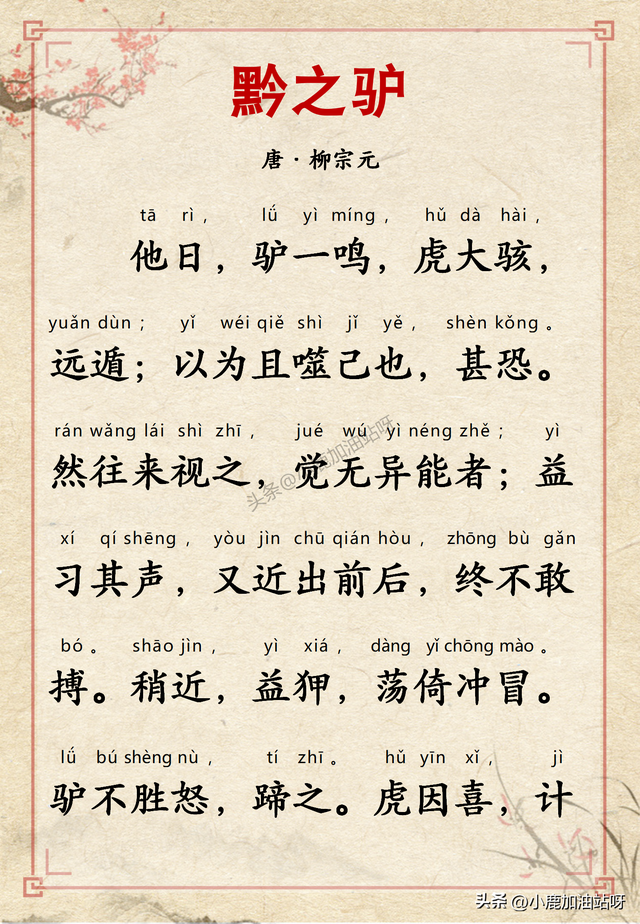 黔之驴
唐·柳宗元
tā rì， lǘ yì míng， hǔ dà hài，
他日，驴一鸣，虎大骇，
yuǎn dùn； yǐ wéi qiě shì jǐ yě， shèn kǒng。
远遁；以为且噬己也，甚恐。
rán wǎng lái shì zhī， jué wú yì néng zhě； yì
然往来视之，觉无异能者；益
xí qí shēng， yòu jìn chū qián hòu， zhōng bù gǎn
习其声，又近出前后，终不敢
bó。 shāo jìn， yì xiá， dàng yǐ chōng mào。
搏。稍近，益狎，荡倚冲冒。
lǘ bú shèng nù， tí zhī。 hǔ yīn xǐ， jì
驴不胜怒，蹄之。虎因喜，计
头条@小鹿加油站呀
头条 @小鹿加油站呀